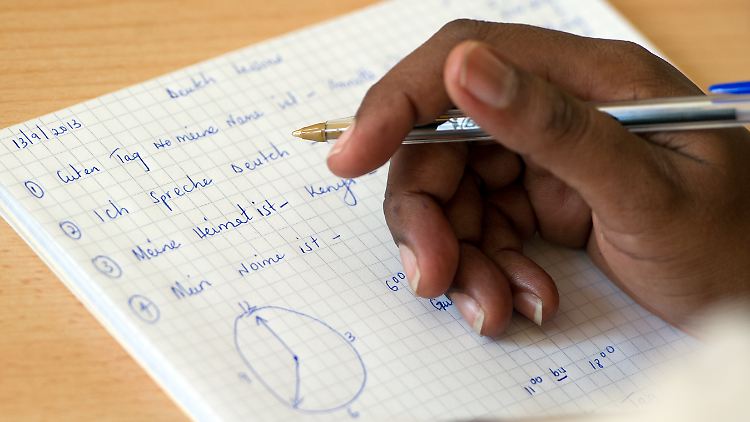 Deutch lessons
13/9/2013
① Guten Tag No meine Name ist -
② Ich Spreche Deutch
③ Meine Heimat ist - Kenya
④ Mein Naime ist -
12
3
9
6
6⁰⁰
11⁰⁰ bis 18⁰⁰